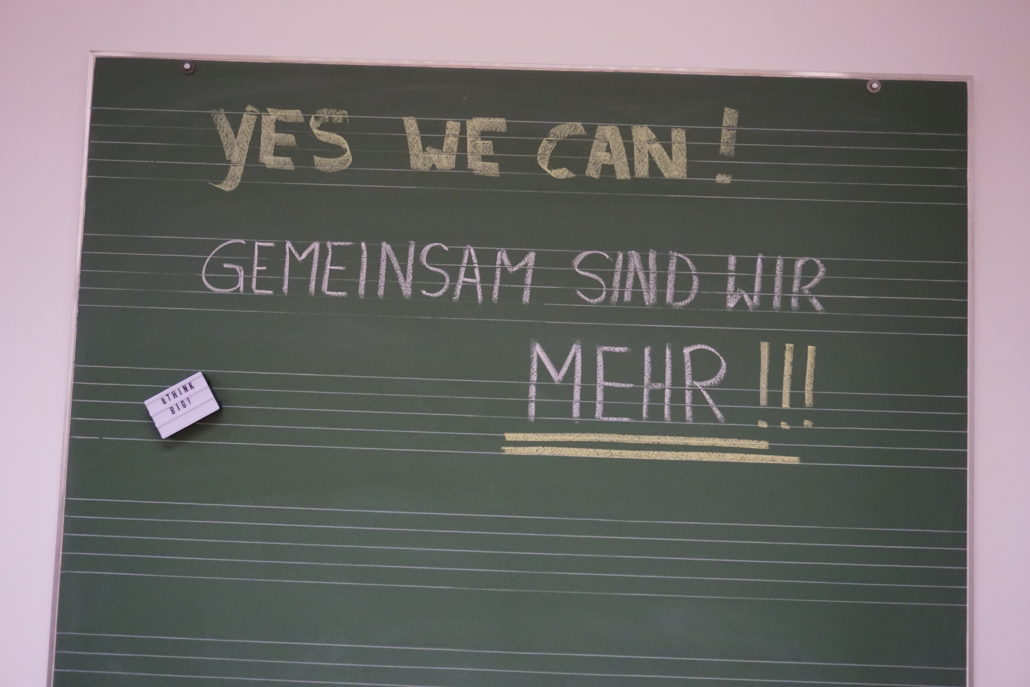 YES WE CAN!
GEMEINSAM SIND WIR
MEHR!!!
#THINK
BIG!